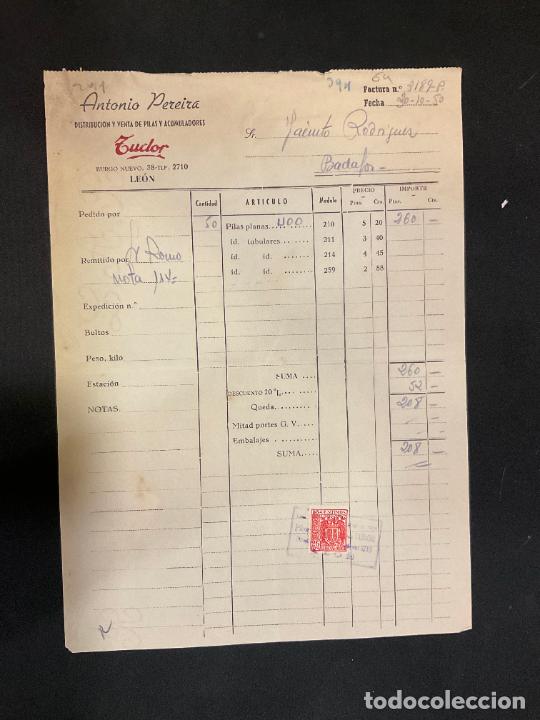 Antonio Pereira
DISTRIBUCION Y VENTA DE PILAS Y ACUMULADORES
Tudor
BURGO NUEVO, 38-TLF. 2710
LEÓN
394
Factura n.º 3189-P.
Fecha 30-10-50
Sr. Jacinto Rodriguez
Cantidad ARTICULO Modelo PRECIO Ptas. Cts. IMPORTE Ptas. Cts.
Pedido por
50 Pilas planas 400 210 5 20 260 —
id. tubulares 211 3 40
Remitido por
id. id. 214 4 45
nota
id. id. 259 2 88
Expedición n.º
Bultos
Peso, kilo
SUMA 260 —
Estación
DESCUENTO 20 % 52 —
NOTAS
Queda 208 —
Mitad portes G. V.
Embalajes
SUMA 208 —
todocoleccion
todocoleccion.net